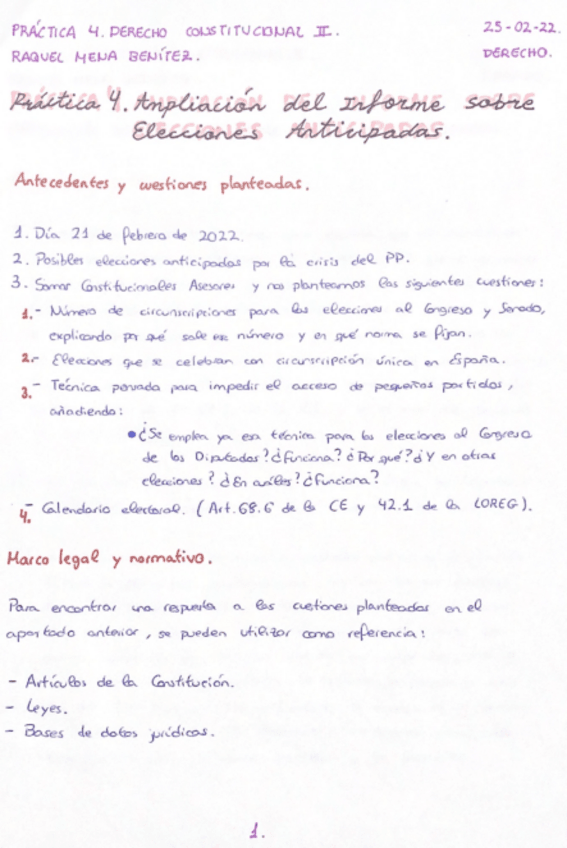 PRÁCTICA 4. DERECHO CONSTITUCIONAL II. 25-02-22.
RAQUEL MENA BENÍTEZ. DERECHO.
Práctica 4. Ampliación del Informe sobre
Elecciones Anticipadas.
Antecedentes y cuestiones planteadas.
1. Día 21 de febrero de 2022.
2. Posibles elecciones anticipadas por la crisis del PP.
3. Somos Constitucionales Asesores y nos planteamos las siguientes cuestiones:
1.- Número de circunscripciones para las elecciones al Congreso y Senado,
explicando por qué sale ese número y en qué norma se fijan.
2.- Elecciones que se celebran con circunscripción única en España.
3.- Técnica pensada para impedir el acceso de pequeños partidos,
añadiendo:
• ¿Se emplea ya esa técnica para las elecciones al Congreso
de los Diputados? ¿Funciona? ¿Por qué? ¿Y en otras
elecciones? ¿En cuáles? ¿Funciona?
4.- Calendario electoral. (Art. 68.6 de la CE y 42.1 de la LOREG).
Marco legal y normativo.
Para encontrar una respuesta a las cuestiones planteadas en el
apartado anterior, se pueden utilizar como referencia:
- Artículos de la Constitución.
- Leyes.
- Bases de datos jurídicas.
1.